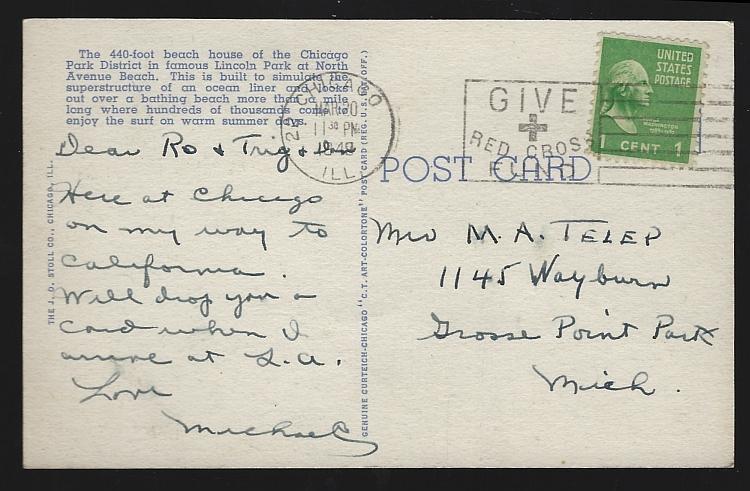 The 440-foot beach house of the Chicago
Park District in famous Lincoln Park at North
Avenue Beach. This is built to simulate the
superstructure of an ocean liner and looks
out over a bathing beach more than a mile
long where hundreds of thousands come to
enjoy the surf on warm summer days.
Dear Ro & Trig &
Here at Chicago
on my way to
California.
Will drop you a
card when I
arrive at L.A.
Love
Michael
THE J. O. STOLL CO., CHICAGO, ILL.
GENUINE CURTEICH-CHICAGO "C.T. ART-COLORTONE" POST CARD (REG. U.S. PAT. OFF.)
CHICAGO
MAR 30
11 30 PM
1948
ILL.
GIVE
RED CROSS
FUND
UNITED
STATES
POSTAGE
WASHINGTON
1 CENT 1
POST CARD
Mrs M. A. TELEP
1145 Wayburn
Grosse Point Park
Mich.